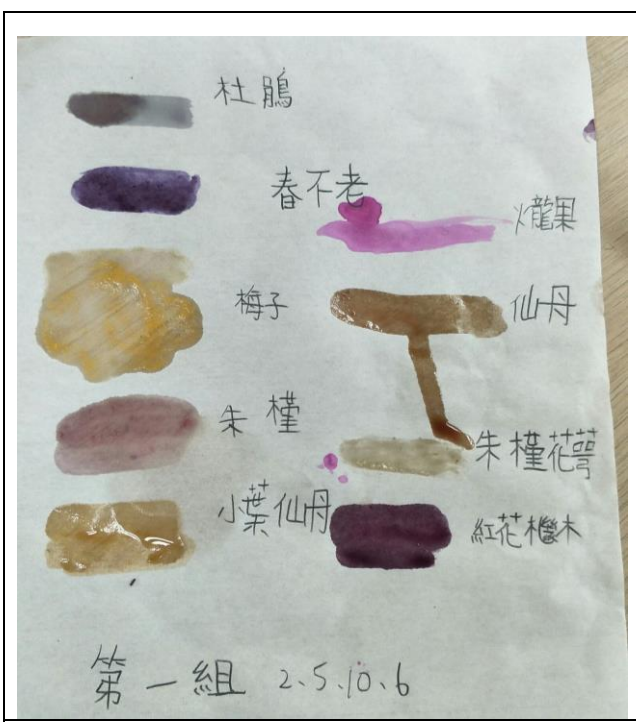 杜鵑
春不老
火龍果
梅子
仙丹
朱槿
朱槿花萼
小葉仙丹
紅花檵木
第一組 2、5、10、6